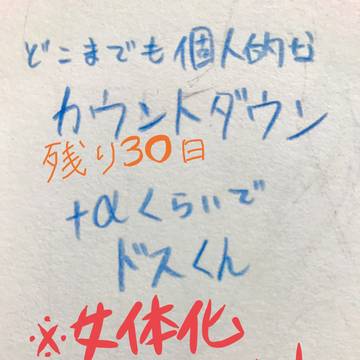 どこまでも個人的な
カウントダウン
残り30日
+αくらいで
ドスくん
※女体化